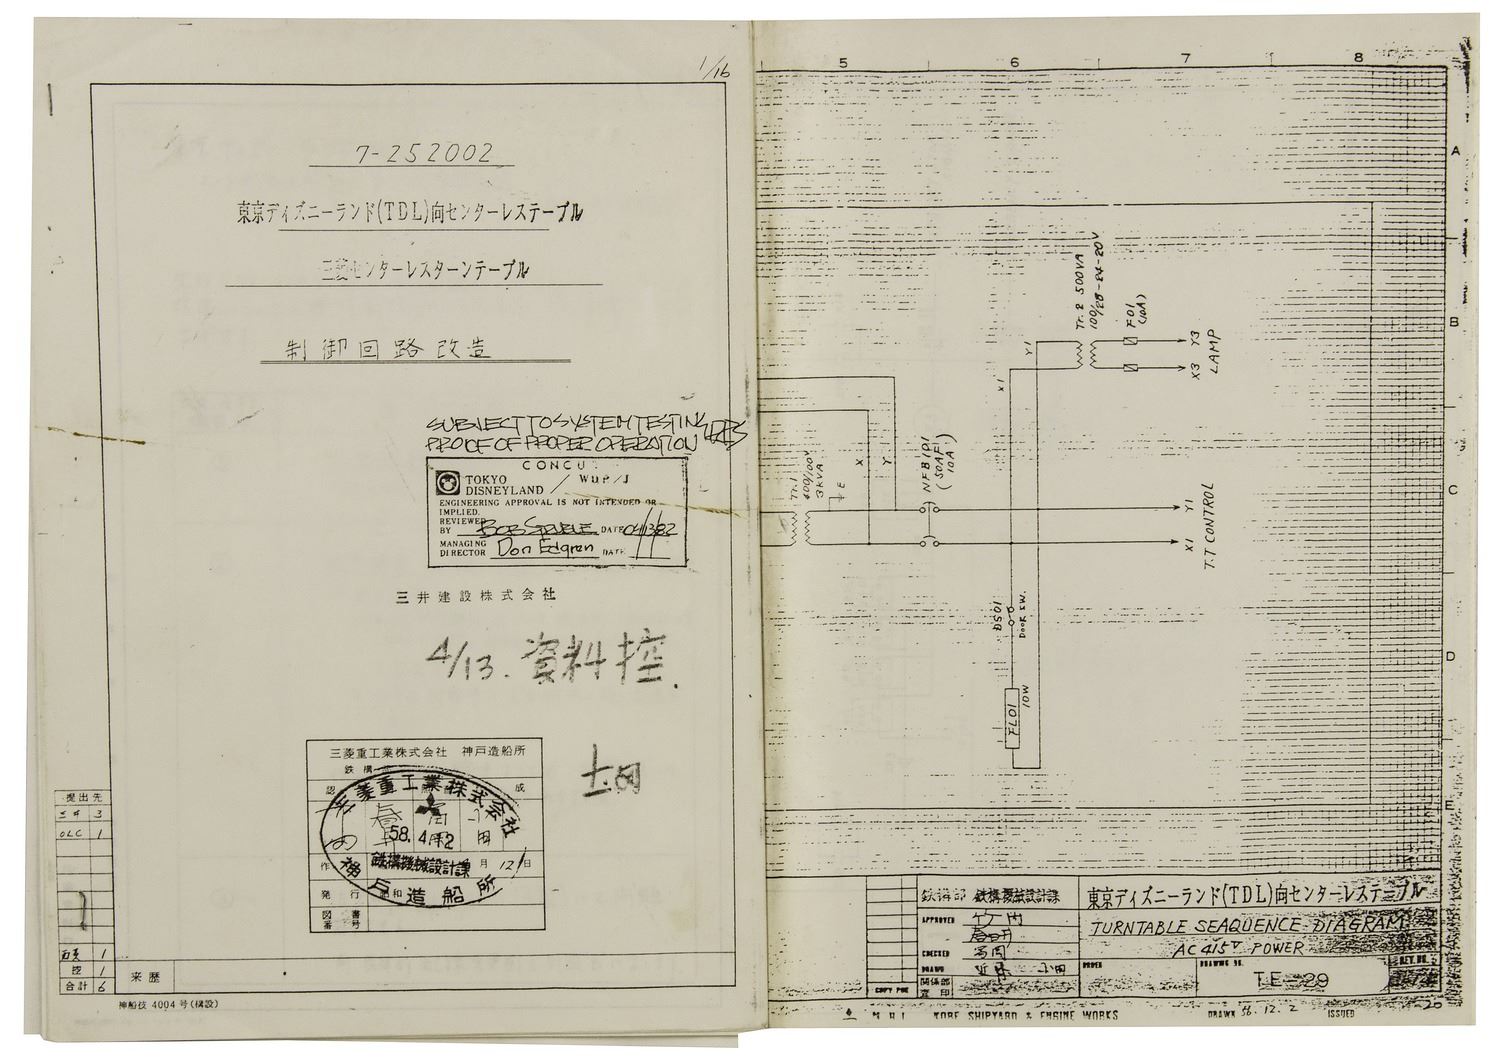 1/16
7-252002
東京ディズニーランド(TDL)向センターレステーブル
三菱センターレスターンテーブル
制御回路改造
SUBJECT TO SYSTEM TESTING
PROOF OF PROPER OPERATION
CONCU
TOKYO
DISNEYLAND / WDP/J
ENGINEERING APPROVAL IS NOT INTENDED OR
IMPLIED.
REVIEWED
BY BOB DATE 04/13/82
MANAGING
DIRECTOR Don Edgren DATE
三井建設株式会社
4/13. 資料控.
三菱重工業株式会社 神戸造船所
鉄構
認 成
三菱重工業株式会社
58. 4.
鉄構機械設計課
作 月 12 日
神戸造船所
発行 昭和
図書
番号
提出先
三井 3
OLC 1
1
控 1
合計 6
来歴
神船技 4004 号(構設)
5 6 7 8
A
B
C
D
E
Tr.2 500VA
100/28-24-20V
F01
(10A)
X3 Y3
LAMP
X1 Y1
Tr.1
400/100V
3KVA
E
X Y
NFB1P1
(50AF)
10A
X1 Y1
T.T CONTROL
DS01
DOOR SW.
FL01
10W
鉄構部 鉄構機械設計課
APPROVED
CHECKED
DRAWN
関係部
査印
COPY FOR
東京ディズニーランド(TDL)向センターレステーブル
TURNTABLE SEAQUENCE DIAGRAM
AC 415V POWER
ORDER
DRAWING NO.
TE-29
REV. NO.
M H I KOBE SHIPYARD & ENGINE WORKS
DRAWN 56.12.2
ISSUED
-20